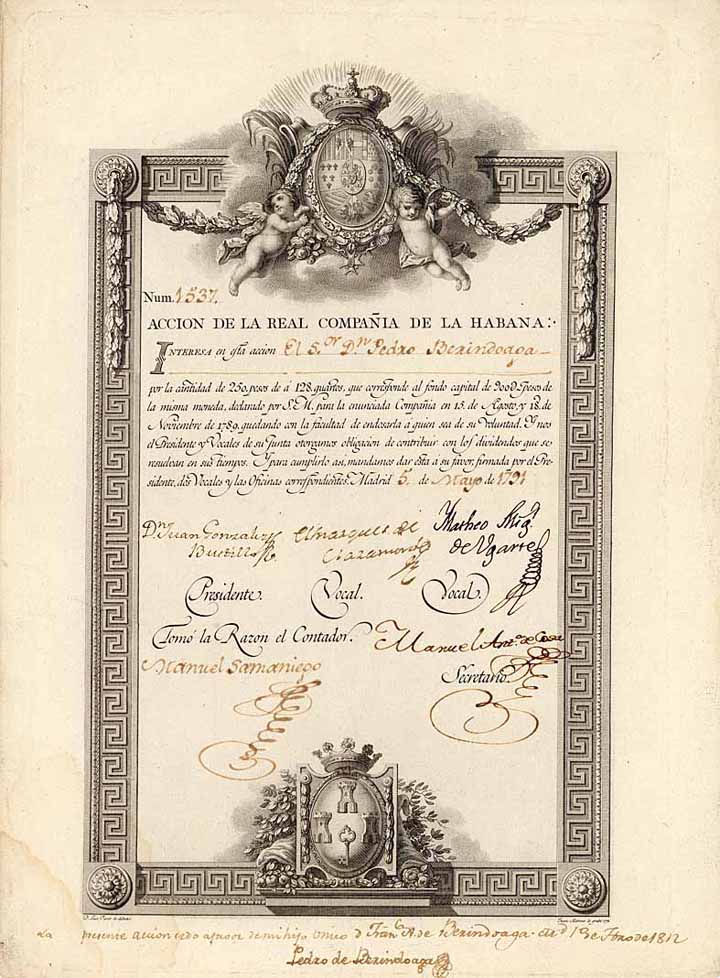 Num. 1537.
ACCION DE LA REAL COMPAÑIA DE LA HABANA:·
INTERESA en esta accion El S.or D.n Pedro Berindoaga
por la cantidad de 250, pesos de á 128, quartos, que corresponde al fondo capital de 900@ Pesos de
la misma moneda, declarado por S. M. para la enunciada Compañia en 15. de Agosto, y 18. de
Noviembre de 1789, quedando con la facultad de endosarla á quien sea de su Voluntad. Y nos
el Presidente y Vocales de su Junta otorgamos obligacion de contribuir con los dividendos que se
resuelvan en sus tiempos. Y para cumplirlo asi, mandamos dar esta á su favor, firmada por el Pre-
sidente, dos Vocales y las Oficinas correspondientes. Madrid 5. de Mayo de 1791
D.n Juan Gonzalez Bustillo
El Marques de
Matheo
de Ugarte
Presidente. Vocal. Vocal.
Tomó la Razon el Contador.
Manuel Ant.o de
Manuel Samaniego
Secretario.
La presente accion cedo a favor de mi hijo Unico d. Fran.co A. de Berindoaga. 15 de de 1812
Pedro de Berindoaga